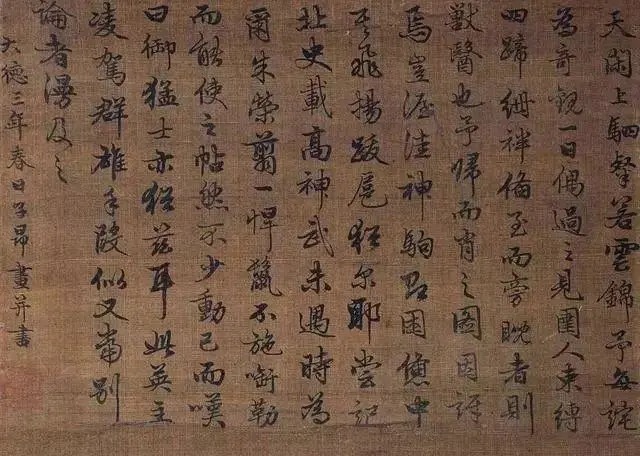 天閑上駟粲若雲錦予每詫
為奇觀一日偶過之見圉人束縛
四蹄紲袢俻至而旁睨者則
獸醫也予歸而肖之圖因訝
焉豈渥洼神駒困憊中
其飛揚跋扈猶尔耶嘗記
北史載高神武未遇時為
爾朱榮翦一悍不施銜勒
而能使之帖然不少動已而嘆
曰御猛士亦猶茲耳此英主
凌駕群雄手段似又當別
論者漫及之
大德三年春日子昂畫并書